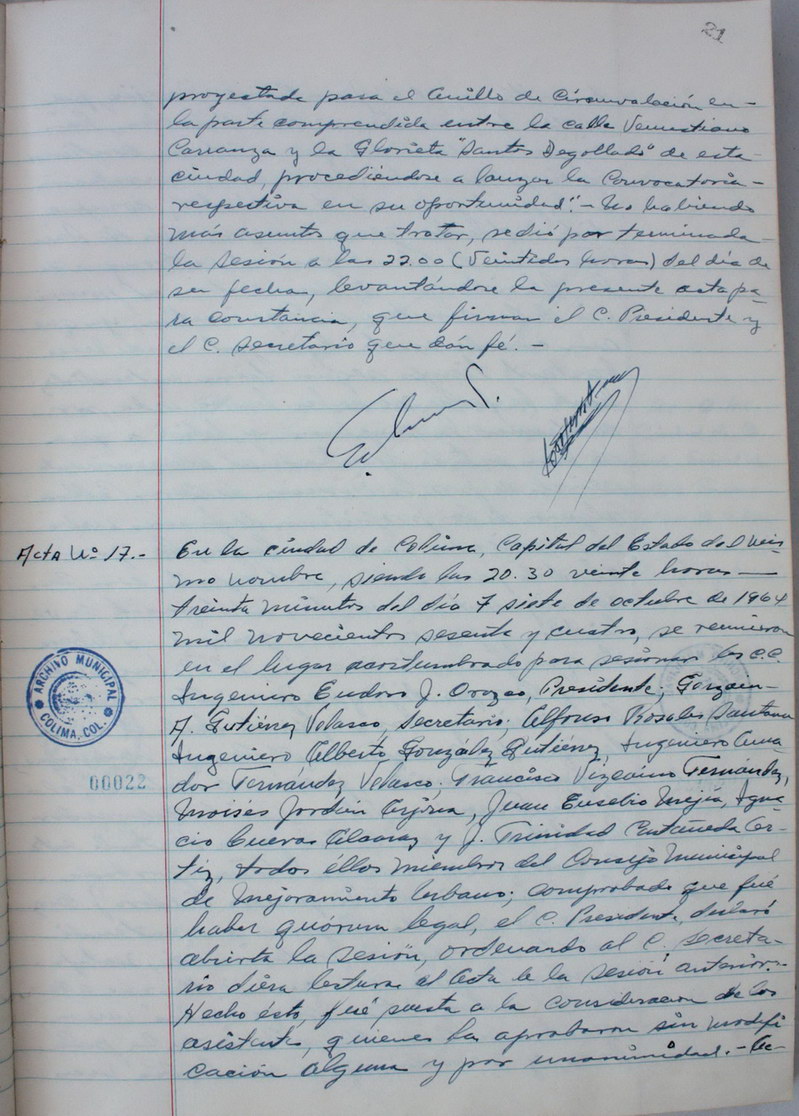 21
proyectada para el Anillo de Circunvalación en-
la parte comprendida entre la calle Venustiano
Carranza y la Glorieta "Santos Degollado" de esta
ciudad, procediéndose a lanzar la Convocatoria-
respectiva en su oportunidad".- No habiendo
más asuntos que tratar, se dió por terminada
la sesión a las 22.00 (Veintidos horas) del día de
su fecha, levantándose la presente acta pa-
ra constancia, que firman el C. Presidente y
el C. Secretario que dán fé.-
Acta Nº 17.-
En la ciudad de Colima, Capital del Estado del mis-
mo nombre, siendo las 20.30 veinte horas
treinta minutos del día 7 siete de octubre de 1964
mil novecientos sesenta y cuatro, se reunieron
en el lugar acostumbrado para sesionar los C.C.
Ingeniero Eudoro J. Orozco, Presidente;
A. Gutiérrez Velasco, Secretario; Alfonso Rosales Santana
Ingeniero Alberto González Gutiérrez, Ingeniero Ama-
dor Fernández Velasco; Francisco Vizcaíno Fernández,
Moisés Jordín, Juan Eusebio Mejía, Igna-
cio Cuevas Alcaraz y J. Trinidad Castañeda Or-
tíz, todos éllos miembros del Consejo Municipal
de Mejoramiento Urbano; comprobado que fué
haber quórum legal, el C. Presidente, declaró
abierta la sesión, ordenando al C. Secreta-
rio diera lectura al Acta de la sesión anterior.-
Hecho ésto, fué puesta a la consideración de los
asistentes, quienes la aprobaron sin modifi
cación alguna y por unanimidad.-
ARCHIVO MUNICIPAL
COLIMA, COL.
00022